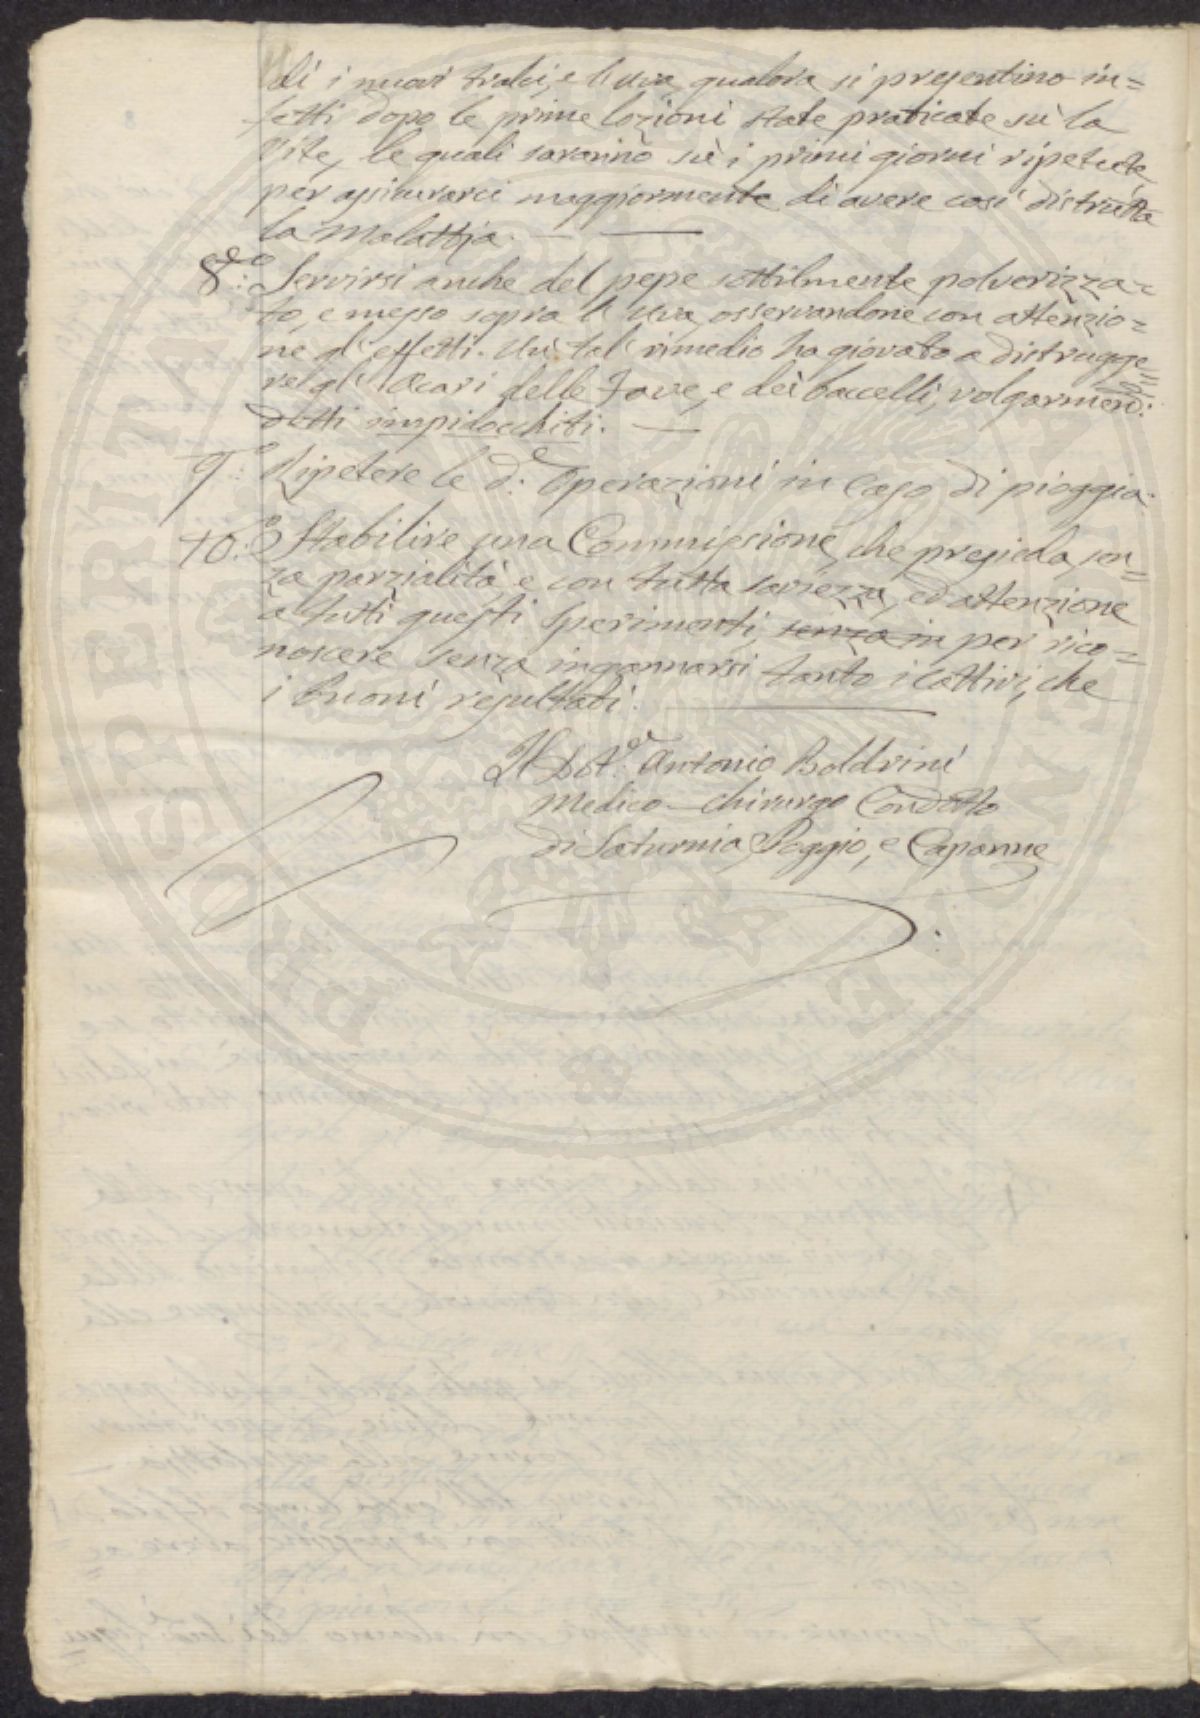 di i nuovi tralci, e l'uva, qualora si presentino in=
fetti dopo le prime lozioni state praticate sù la
Vite, le quali saranno sù i primi giorni ripetute
per assicurarci maggiormente di avere così distrutta
la Malattia. —
8.° Servirsi anche del pepe sottilmente polverizza=
to, e messo sopra l'Uva, osservandone con attenzio=
ne gl'effetti. Un tal' rimedio ha giovato a distrugge=
re gl' Acari delle Fave, e dei baccelli, volgarmen.
detti impidocchiti. —
9.° Ripetere le d.e Operazioni in caso di pioggia.
10.° Stabilire una Commissione, che presieda, sen=
za parzialità, e con tutta saviezza, ed attenzione
a tutti questi Sperimenti, senza in per rico=
noscere senza ingannarsi tanto i Cattivi, che
i buoni resultati. —
Il Dot.e Antonio Boldrini
Medico-Chirurgo Condotto
di Saturnia, Poggio, e Capanne
PROSPERITA
GIOVENTU